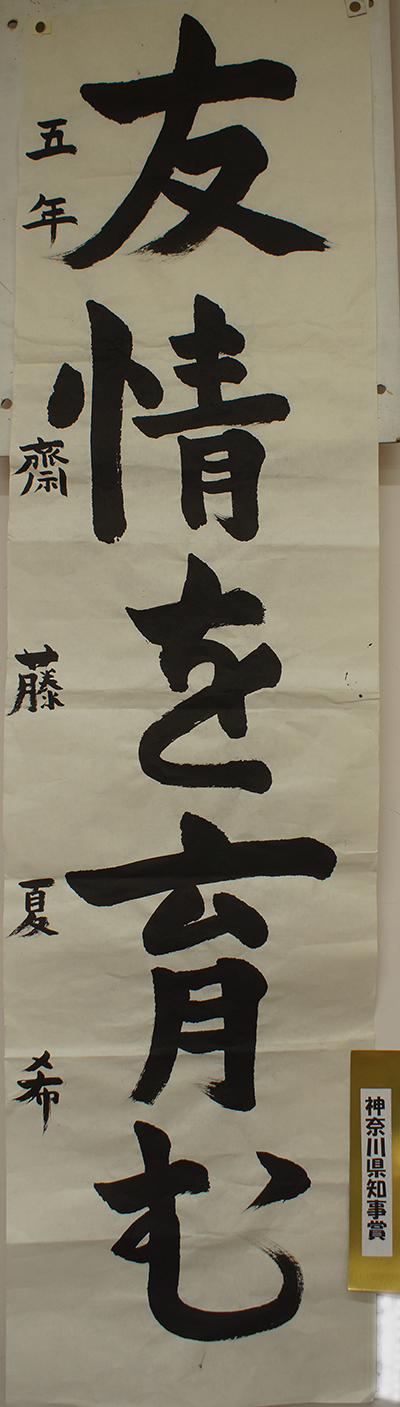 神奈川県知事賞
友情を育む
五年 齋藤夏希